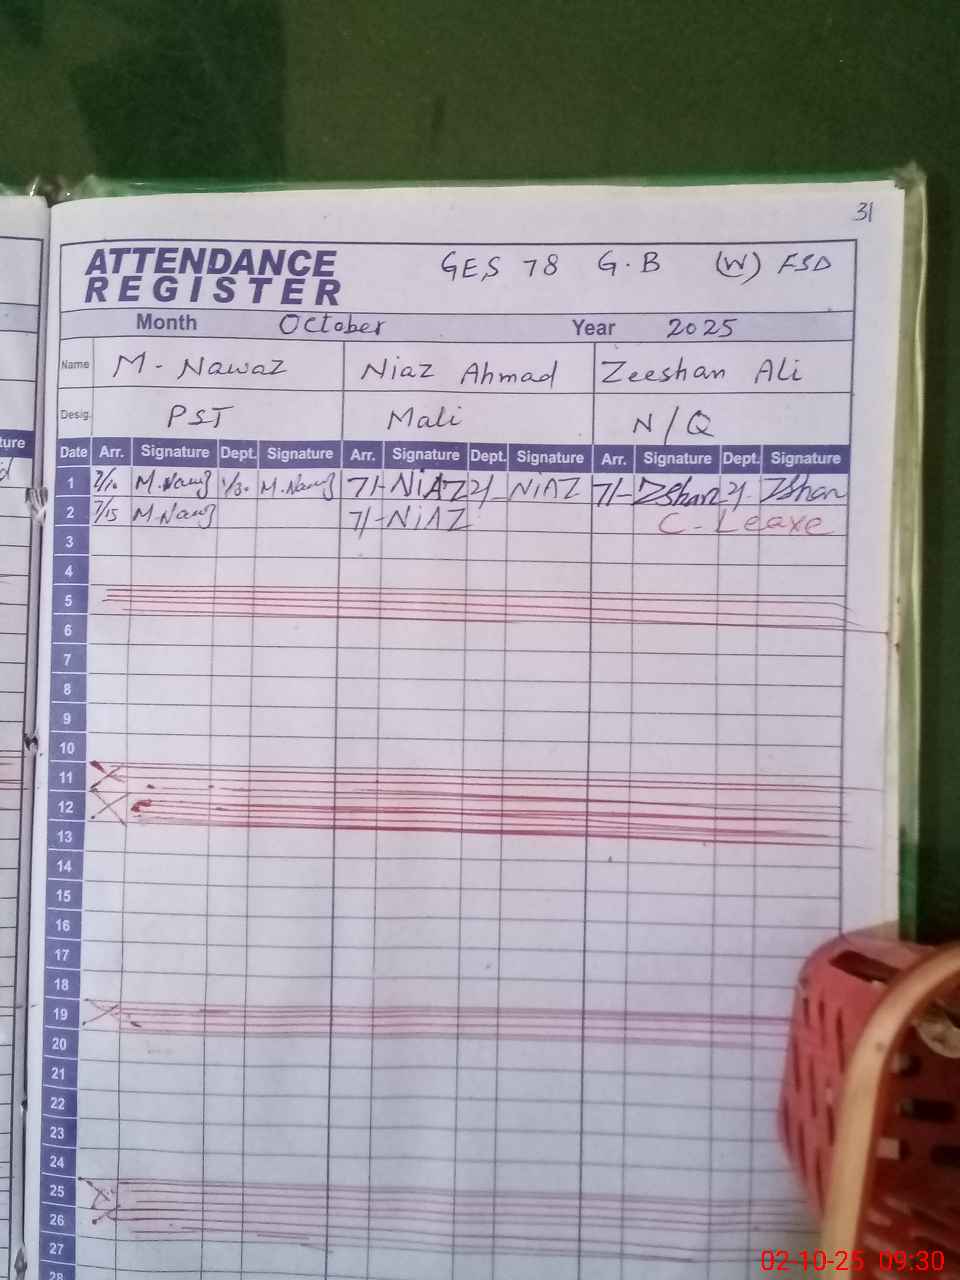 31
ATTENDANCE
REGISTER
GES 78 G.B (W) FSD
Month October Year 2025
Name M. Nawaz Niaz Ahmad Zeeshan Ali
Desig. PST Mali N/Q
ture
Date Arr. Signature Dept. Signature Arr. Signature Dept. Signature Arr. Signature Dept. Signature
1 7/10 M.Nawaz 1/30 M.Nawaz 7/- NiAZ 2/- NiAZ 7/- ZShan 2/- ZShan
2 7/15 M.Nawaz 7/- NiAZ C - Leave
3
4
5
6
7
8
9
10
11
12
13
14
15
16
17
18
19
20
21
22
23
24
25
26
27
28
02-10-25 09:30